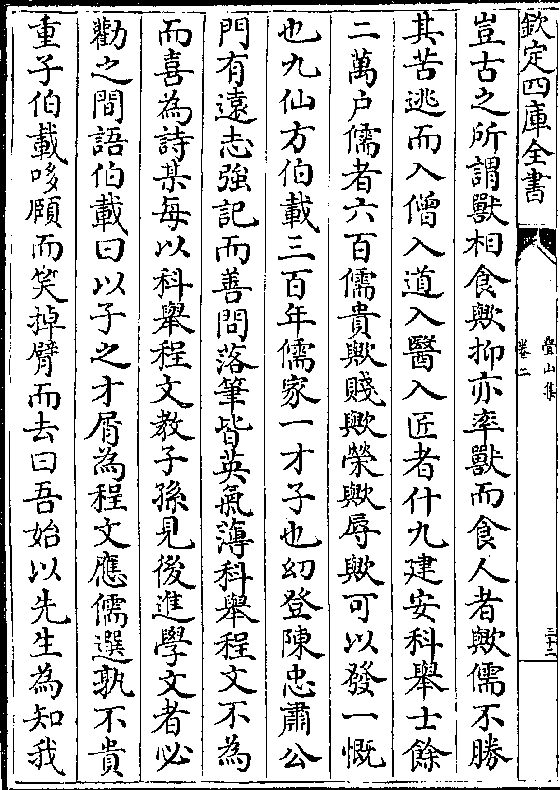 欽定四庫全書
疊山集
卷二
三十二
豈古之所謂獸相食歟抑亦率獸而食人者歟儒不勝
其苦逃而入僧入道入醫入匠者什九建安科舉士餘
二萬户儒者六百儒貴歟賤歟榮歟辱歟可以發一慨
也九仙方伯載三百年儒家一才子也幼登陳忠肅公
門有遠志強記而善問落筆皆英氣薄科舉程文不為
而喜為詩某每以科舉程文教子孫見後進學文者必
勸之間語伯載曰以子之才屑為程文應儒選孰不貴
重子伯載哆頤而笑掉臂而去曰吾始以先生為知我